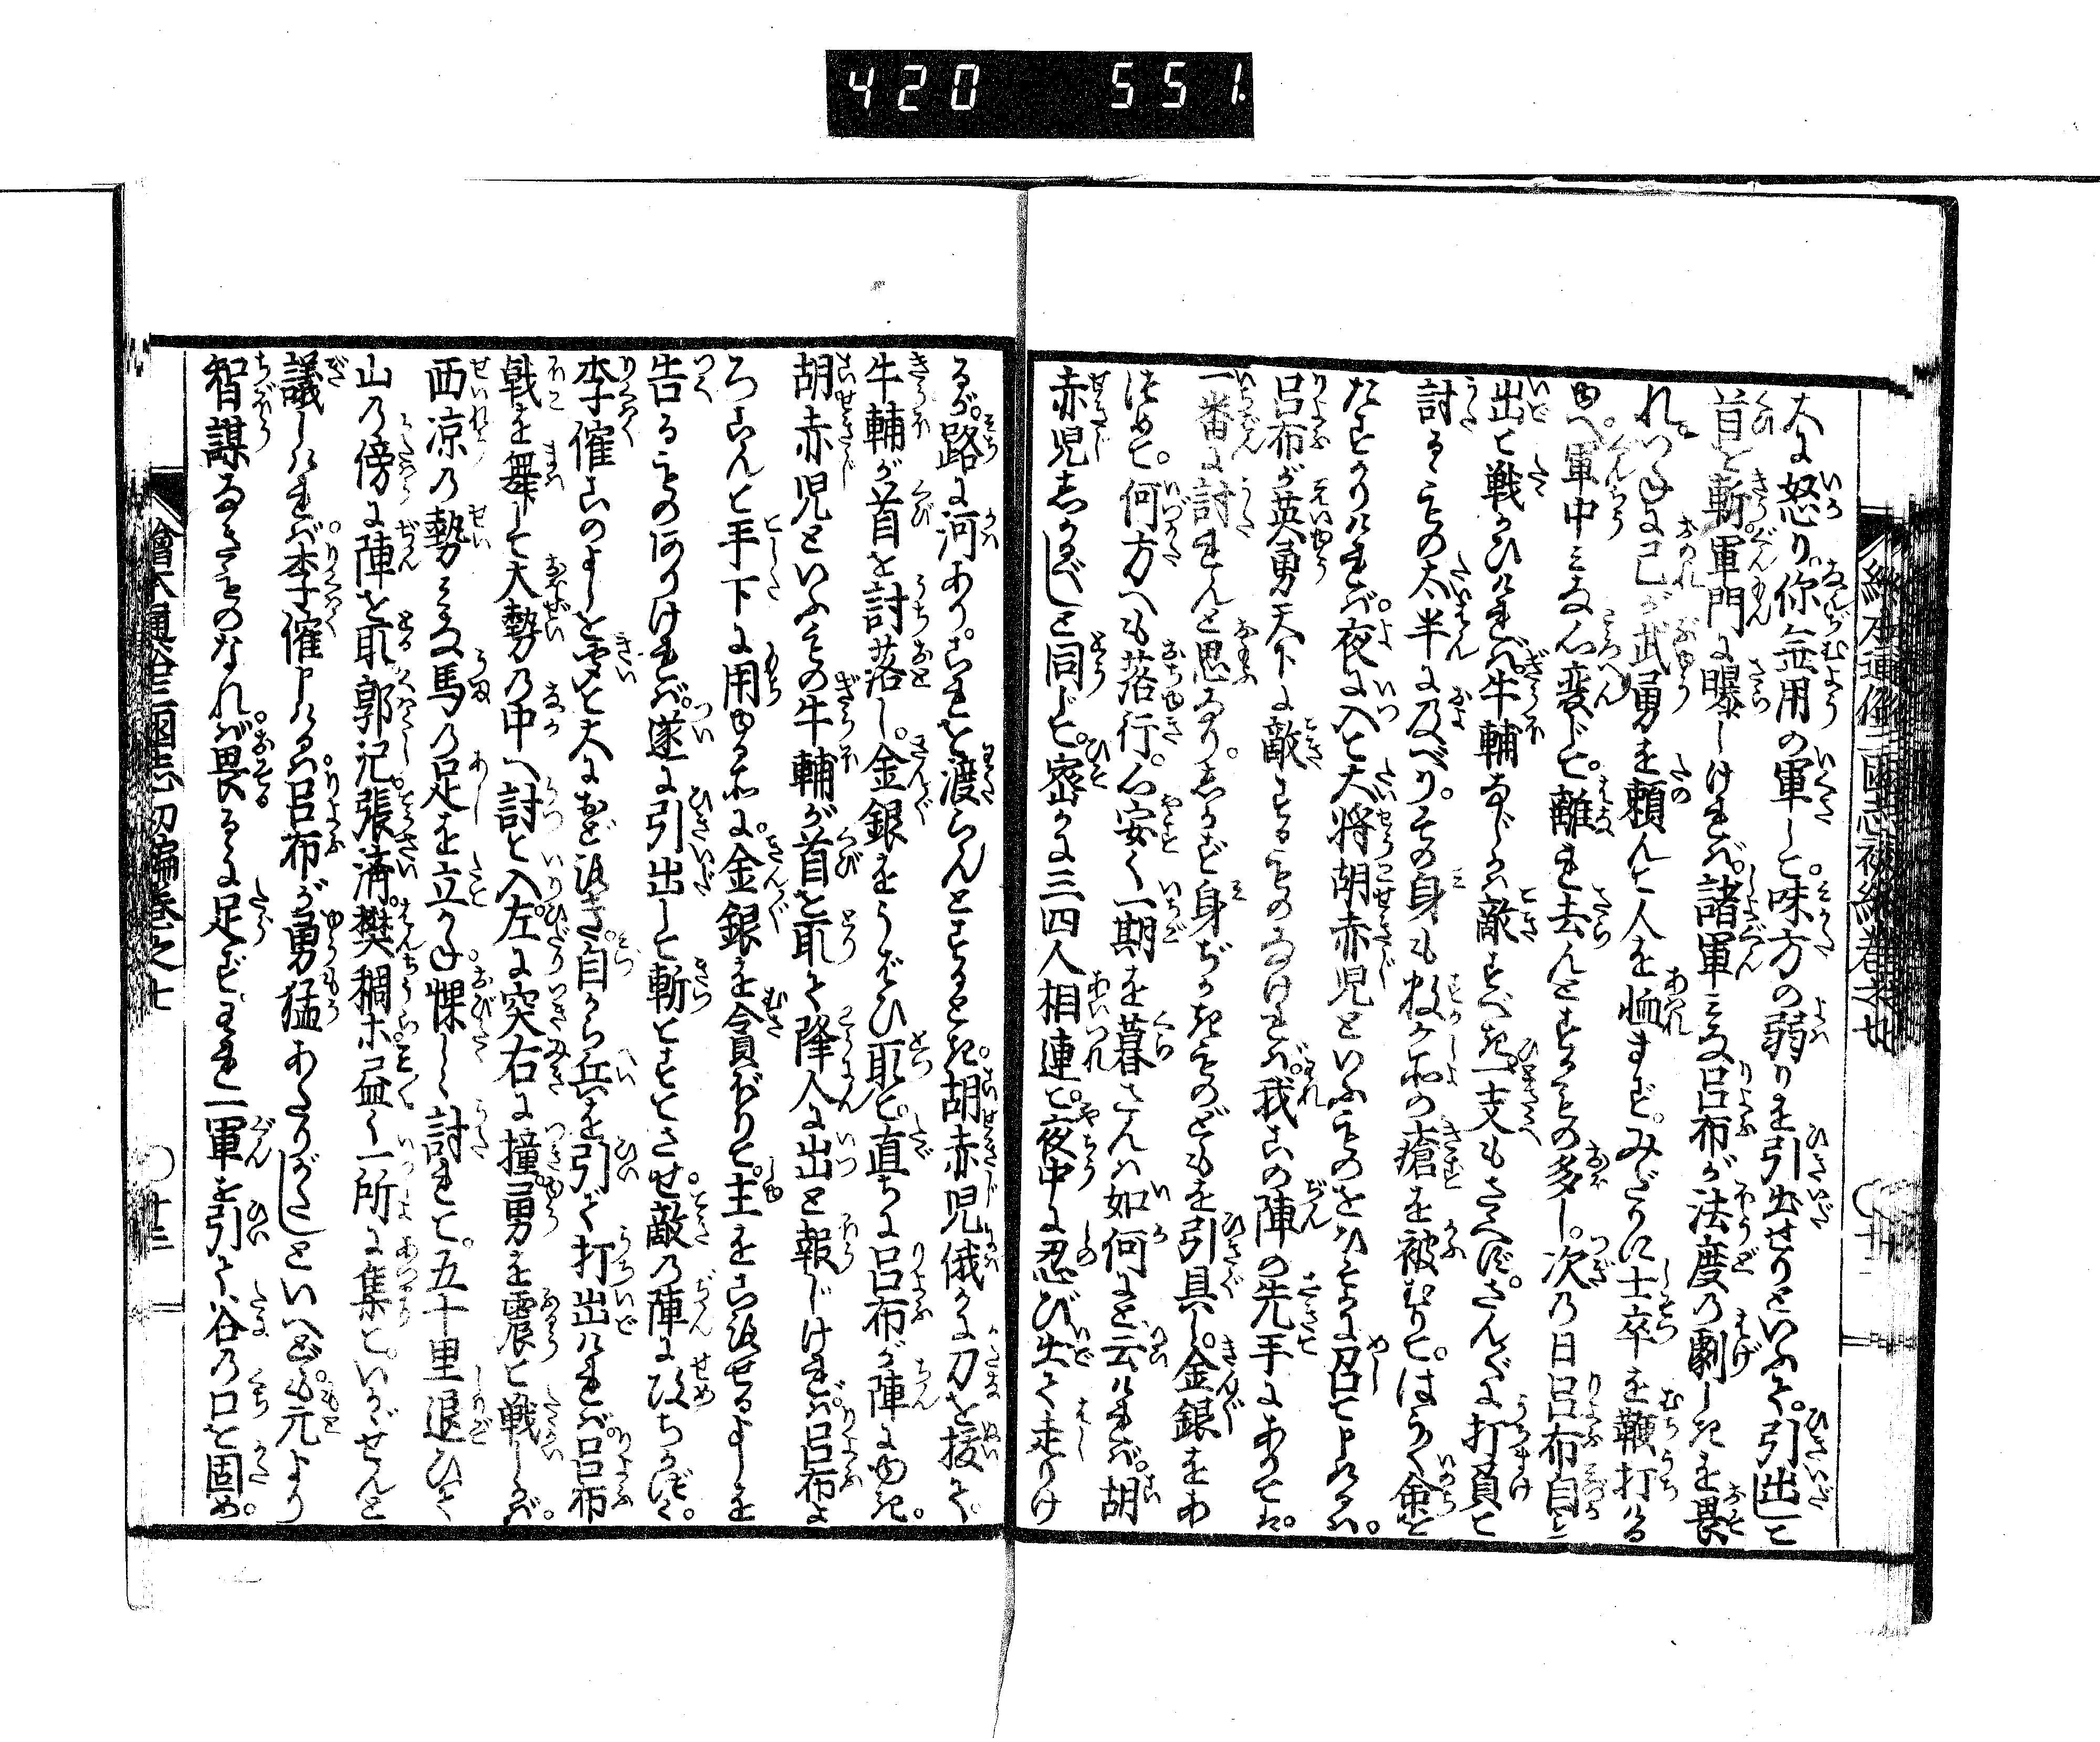 420 551.
大に怒り。你無用の軍して。味方の弱りを引出せりといふて。引出して
首を斬。軍門に曝しければ。諸軍みな呂布が法度の劇しきを畏
れつ。己が武勇を頼んで人を恤まず。みだりに士卒を鞭打ける
ゆへ軍中みな心変じて。離れ去んとするもの多し。次の日呂布自ら
出て戦ひければ。牛輔なじかは敵すべき。一支もささへず。さんざんに打負て
討るるもの大半に及べり。その身も数ヶ所の瘡を被むりて。はうく命を
たすかりければ。夜に入て大将胡赤児といふものをひそかに召て申けるは。
呂布が英勇天下に敵するものなければ。我この陣の先手にありては。
一番に討れんと思ふなり。しかず身ぢかきものどもを引具し。金銀をあ
つめて。何方へも落行。心安く一期を暮さんは如何にと云ければ。胡
赤児しかるべしと同じて。密かに三四人相連て。夜中に忍び出て走りけ
るが。路に河あり。これを渡らんとするとき。胡赤児俄かに刀を抜て。
牛輔が首を討落し。金銀をうばひ取て。直ちに呂布が陣にゆき。
胡赤児といふもの牛輔が首を取て降人に出と報じければ。呂布よ
ろこんで手下に用ゆる所に。金銀を貪ぼりて。主をころせるよしを
告るものありければ。遂に引出して斬てすてさせ。敵の陣に攻ちかづく。
李傕このよしを聞て大におどろき。自から兵を引て打出ければ。呂布
戟を舞して大勢の中へ討て入。左に突右に撞。勇を震て戦しかば。
西凉の勢みな馬の足を立かね。慄しく討れて。五十里退ひて
山の傍に陣を取。郭汜張済。樊稠ホ尽く一所に集て。いかがせんと
議しければ。李傕申けるは。呂布が勇猛あたりがたしといへども。元より
智謀なきものなれば。畏るるに足ず。われ一軍を引て。谷の口を固め。
繪本通俗三國志初編巻之七
十三